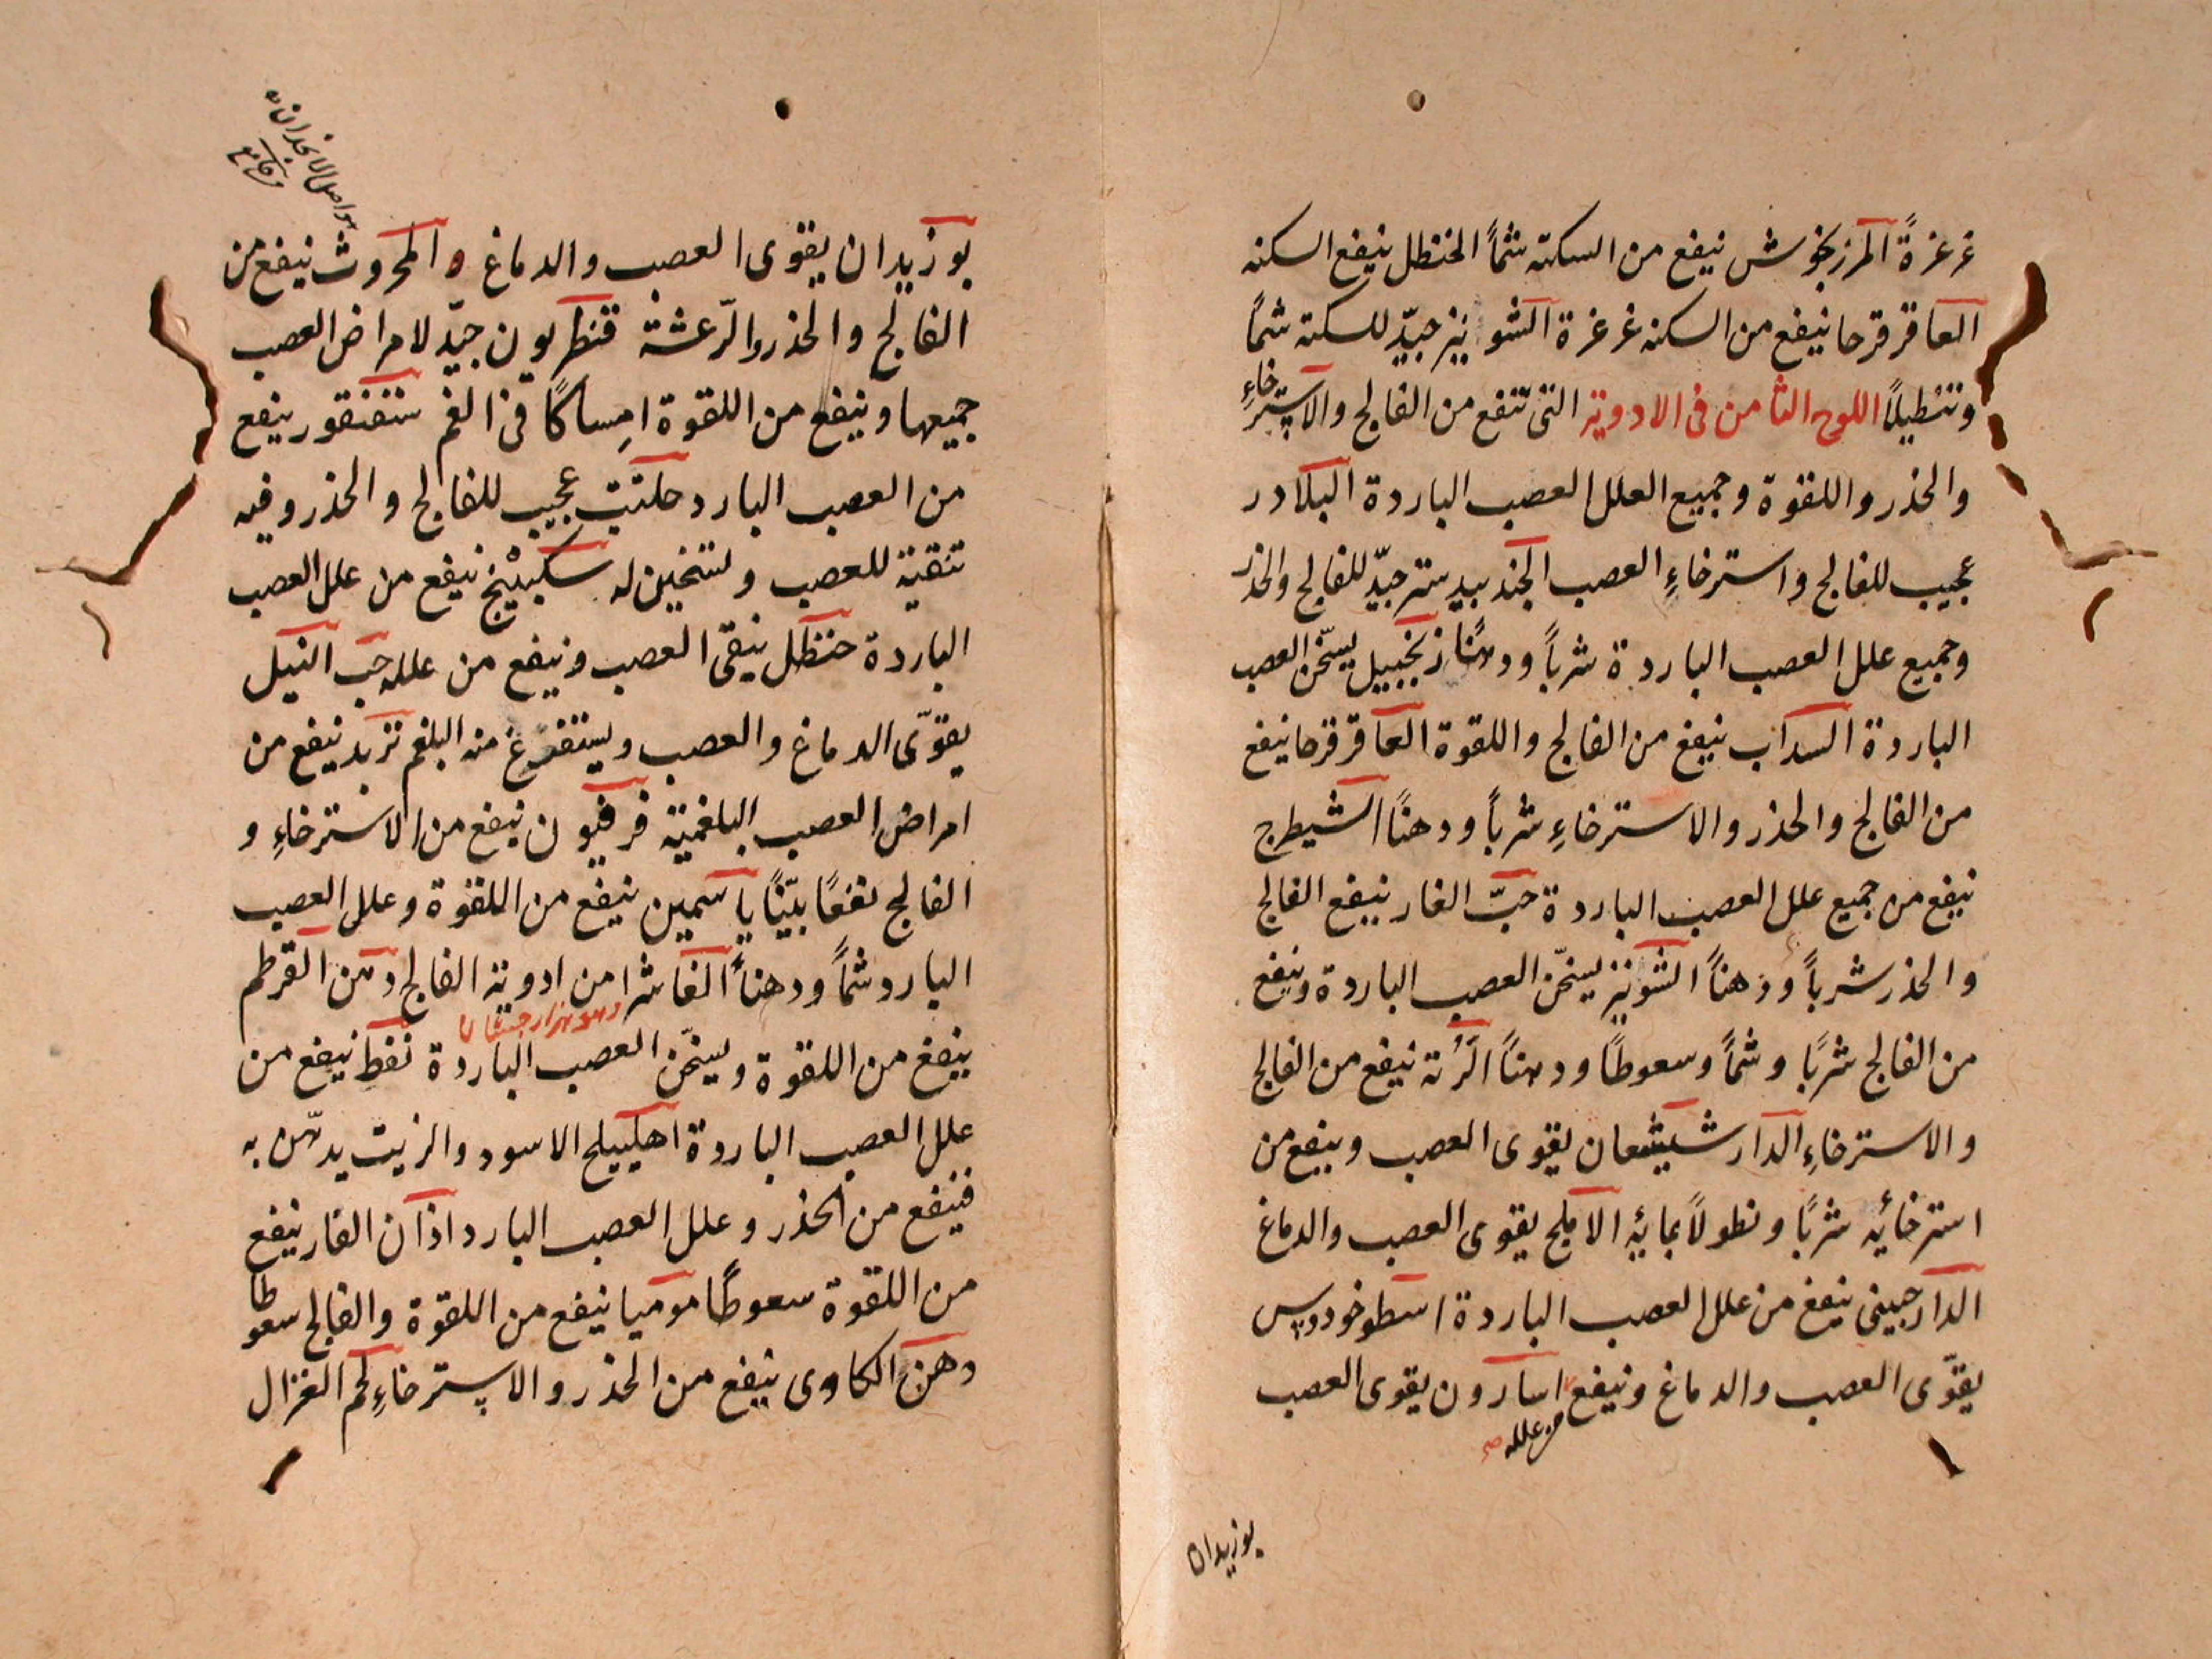 غرغرةً المرزنجوش ينفع من السكتة شمًا الحنظل ينفع السكتة
العاقرقرحا ينفع من السكتة غرغرة الشونيز جيّد للسكتة شمًا
وتنطيلًا اللوح الثامن فى الادوية التى تنفع من الفالج والاسترخاءِ
والخذر واللقوة وجميع العلل العصب الباردة البلادر
عجيب للفالج واسترخاءِ العصب الجندبيدستر جيّد للفالج والخذر
وجميع علل العصب الباردة شربًا ودهنًا زنجبيل يسخّن العصب
الباردة السداب ينفع من الفالج واللقوة العاقرقرحا ينفع
من الفالج والخذر والاسترخاءِ شربًا ودهنًا الشيطرج
ينفع من جميع علل العصب الباردة حبّ الغار ينفع الفالج
والخذر شربًا ودهنًا الشونيز يسخّن العصب الباردة وينفع
من الفالج شربًا وشمًا وسعوطًا ودهنًا الرّتة ينفع من الفالج
والاسترخاءِ الدارشيشعان يقوى العصب وينفع من
استرخائه شربًا ونطولًا بمائه الاملج يقوى العصب والدماغ
الدارجينى ينفع من علل العصب الباردة اسطوخودوس
يقوّى العصب والدماغ وينفع اسارون يقوى العصب
من علله صح
بوزيدان
هو اصل الانجذان
بوزيدان يقوى العصب والدماغ و المحروث ينفع من
الفالج والخذر والرّعشة قنطريون جيّد لامراض العصب
جميعها وينفع من اللقوة امساكًا فى الفم سقنقور ينفع
من العصب البارد حلتيت عجيب للفالج والخذر وفيه
تنقية للعصب وتسخين له سكبينج ينفع من علل العصب
الباردة حنظل ينقى العصب وينفع من علله حب النيل
يقوّى الدماغ والعصب ويستفرغ منه البلغم تربد ينفع من
امراض العصب البلغمية فرفيون ينفع من الاسترخاءِ و
الفالج نفعًا بيّنًا ياسمين ينفع من اللقوة وعلل العصب
البارد شمًا ودهنًا الفاشرا من ادوية الفالج دهن القرطم
وهو هزار جشان
ينفع من اللقوة ويسخّن العصب الباردة نفط ينفع من
علل العصب الباردة اهليلج الاسود والزيت يدهن به
فينفع من الخذر وعلل العصب البارد اذان الفار ينفع
من اللقوة سعوطًا موميا ينفع من اللقوة والفالج سعوطا
دهن الكاوى ينفع من الخذر والاسترخاءِ لحم الغزال